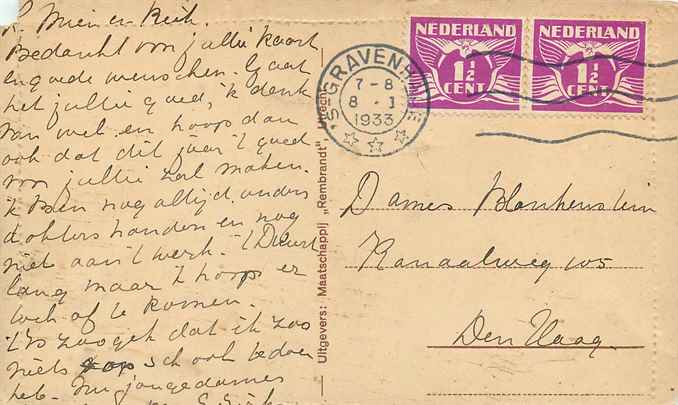 Mien en Riek.
Bedankt voor jullie kaart
en goede wenschen. Gaat
het jullie goed, 'k denk
van wel en hoop dan
ook dat dit jaar 't goed
voor jullie zal maken.
'k Ben nog altijd onder
dokters handen en nog
niet aan 't werk. 't Duurt
lang maar 'k hoop er
toch af te komen.
't Is zoo gek dat ik zoo
niets op school
heb. Nu jongedames
Uitgevers: Maatschappij „Rembrandt", Utrecht
NEDERLAND
1½
CENT
NEDERLAND
1½
CENT
'S-GRAVENHAGE
7-8
8.I
1933
Dames Blankenstein
Kanaalweg 105
Den Haag